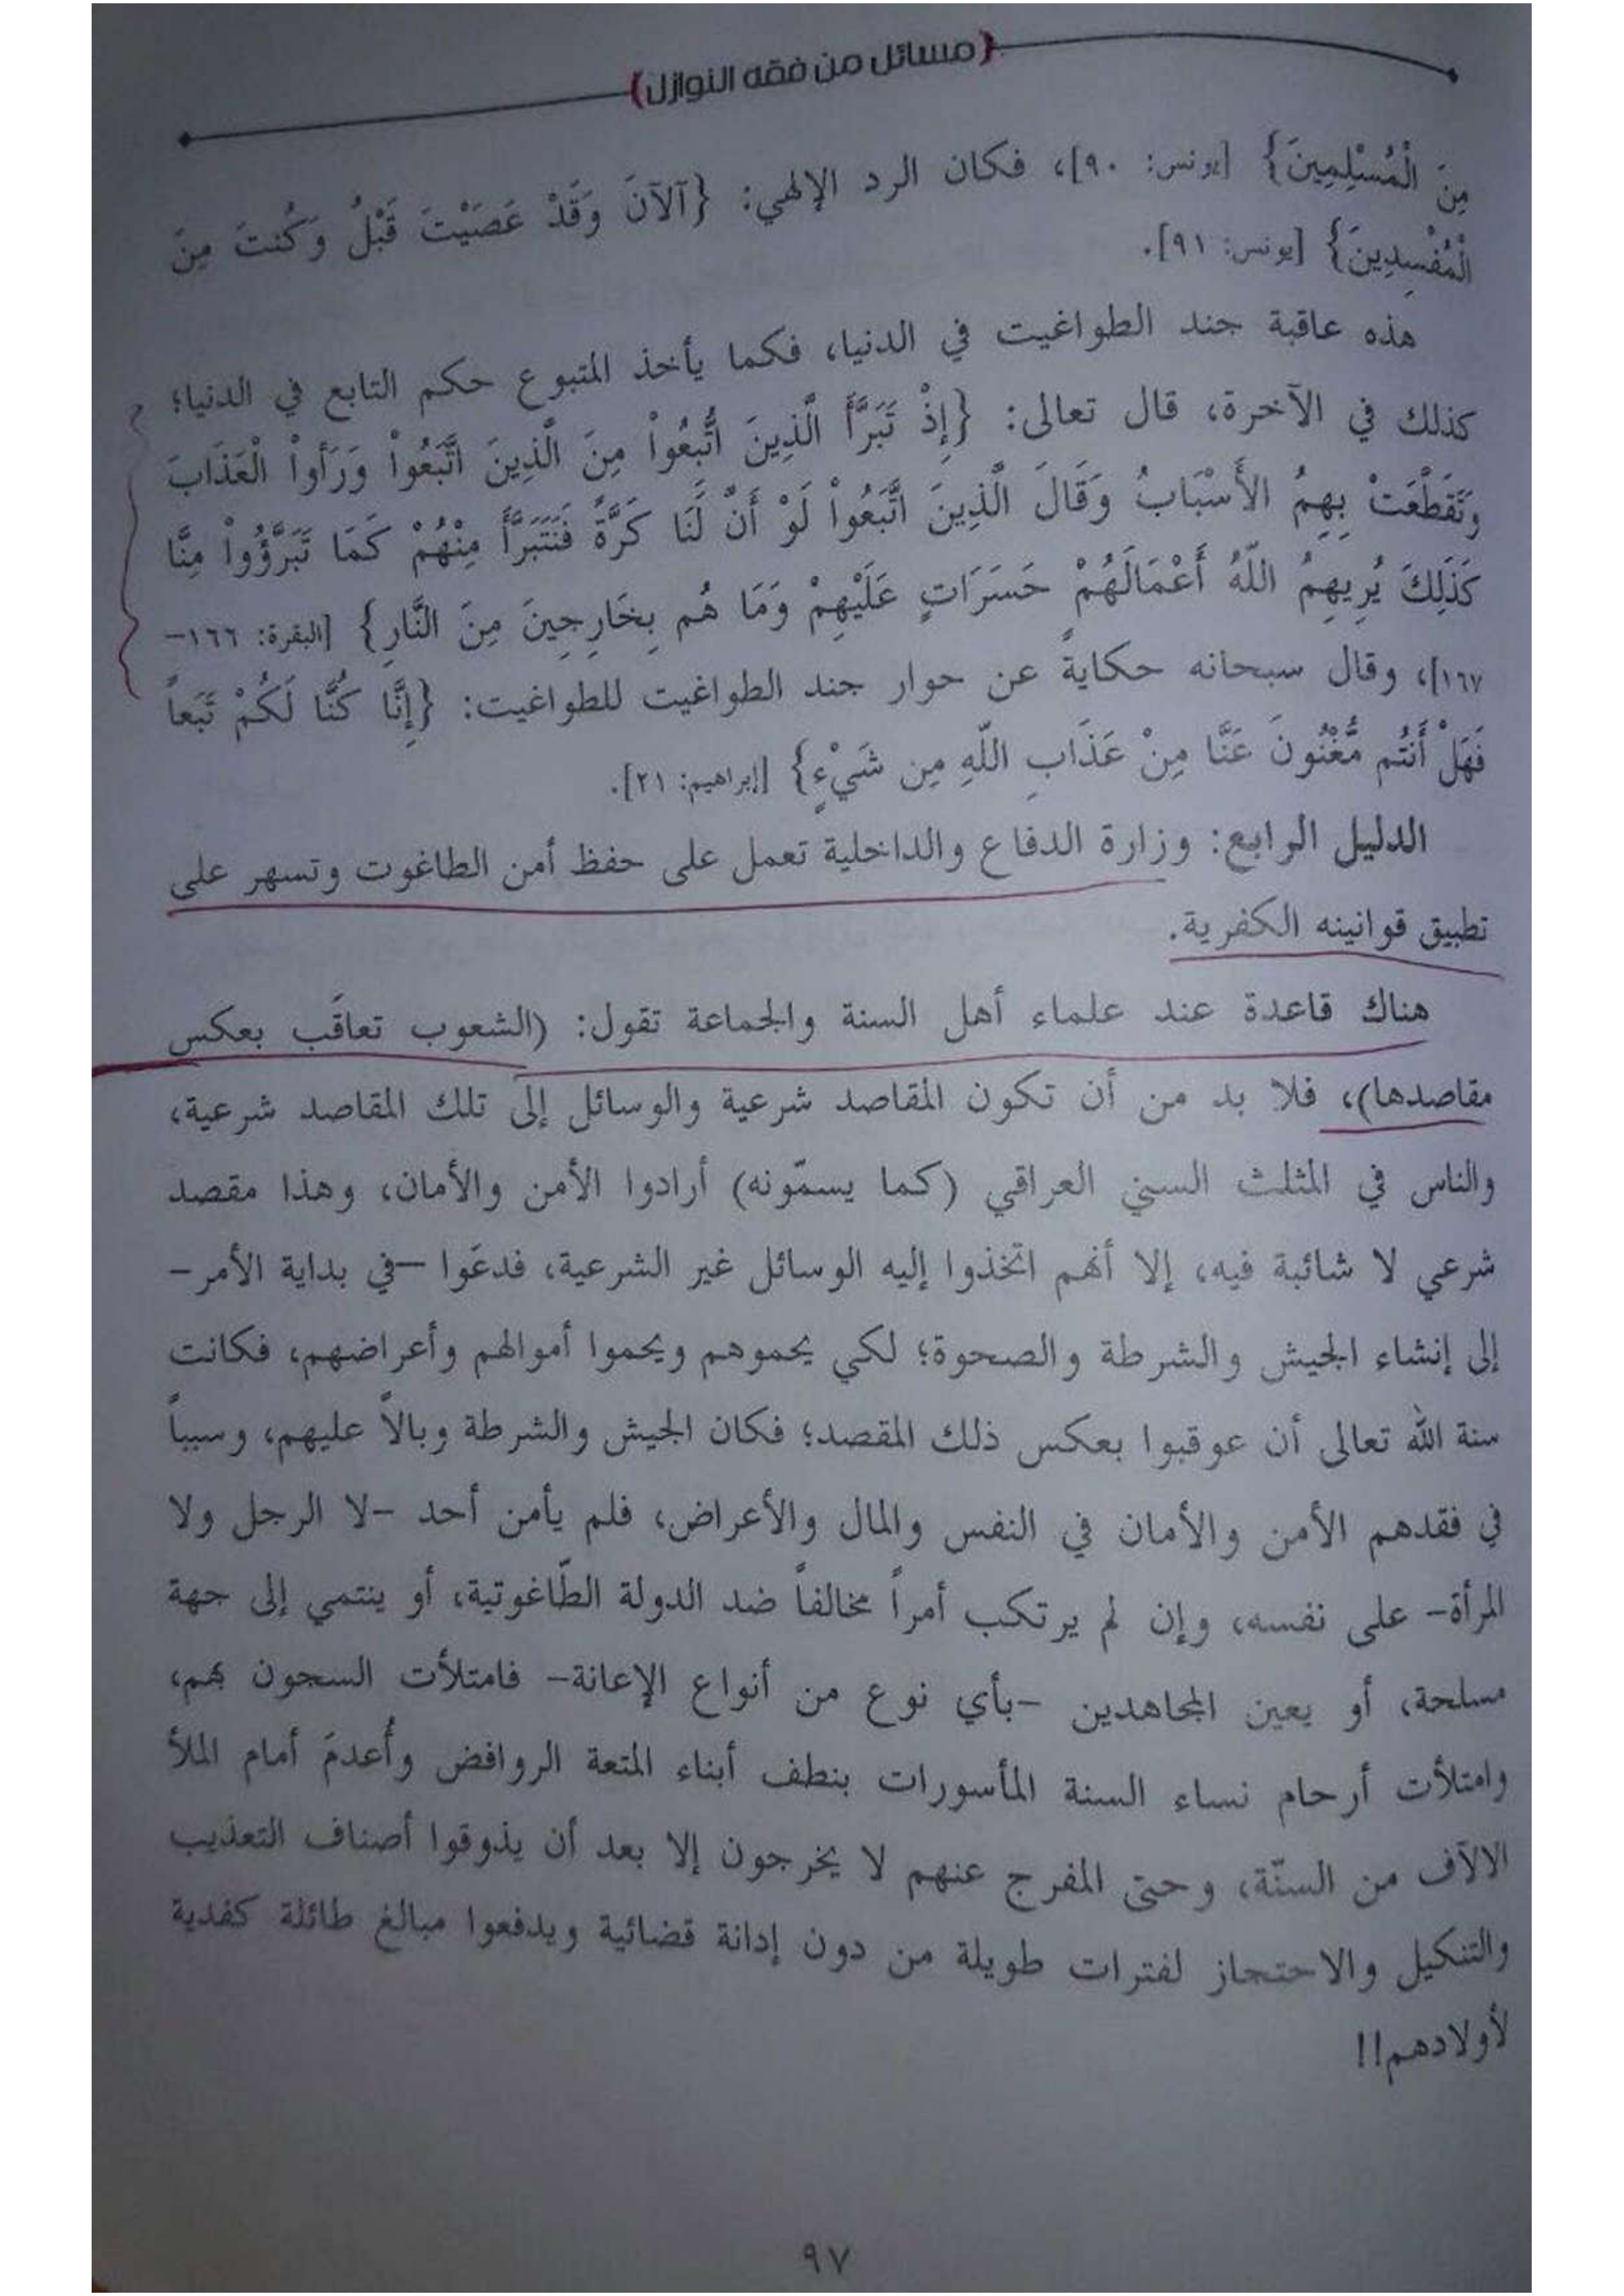 {مسائل من فقه النوازل}
مِنَ الْمُسْلِمِينَ} [يونس: ٩٠]، فكان الرد الإلهي: {آلآنَ وَقَدْ عَصَيْتَ قَبْلُ وَكُنتَ مِنَ
الْمُفْسِدِينَ} [يونس: ٩١].
هذه عاقبة جند الطواغيت في الدنيا، فكما يأخذ المتبوع حكم التابع في الدنيا؛
كذلك في الآخرة، قال تعالى: {إِذْ تَبَرَّأَ الَّذِينَ اتُّبِعُواْ مِنَ الَّذِينَ اتَّبَعُواْ وَرَأَواْ الْعَذَابَ
وَتَقَطَّعَتْ بِهِمُ الأَسْبَابُ وَقَالَ الَّذِينَ اتَّبَعُواْ لَوْ أَنَّ لَنَا كَرَّةً فَنَتَبَرَّأَ مِنْهُمْ كَمَا تَبَرَّؤُواْ مِنَّا
كَذَلِكَ يُرِيهِمُ اللّهُ أَعْمَالَهُمْ حَسَرَاتٍ عَلَيْهِمْ وَمَا هُم بِخَارِجِينَ مِنَ النَّارِ} [البقرة: ١٦٦-
١٦٧]، وقال سبحانه حكايةً عن حوار جند الطواغيت للطواغيت: {إِنَّا كُنَّا لَكُمْ تَبَعاً
فَهَلْ أَنتُم مُّغْنُونَ عَنَّا مِنْ عَذَابِ اللّهِ مِن شَيْءٍ} [إبراهيم: ٢١].
الدليل الرابع: وزارة الدفاع والداخلية تعمل على حفظ أمن الطاغوت وتسهر على
تطبيق قوانينه الكفرية.
هناك قاعدة عند علماء أهل السنة والجماعة تقول: (الشعوب تعاقَب بعكس
مقاصدها)، فلا بد من أن تكون المقاصد شرعية والوسائل إلى تلك المقاصد شرعية،
والناس في المثلث السني العراقي (كما يسمّونه) أرادوا الأمن والأمان، وهذا مقصد
شرعي لا شائبة فيه، إلا أنهم اتخذوا إليه الوسائل غير الشرعية، فدعَوا –في بداية الأمر-
إلى إنشاء الجيش والشرطة والصحوة؛ لكي يحموهم ويحموا أموالهم وأعراضهم، فكانت
سنة الله تعالى أن عوقبوا بعكس ذلك المقصد؛ فكان الجيش والشرطة وبالاً عليهم، وسبباً
في فقدهم الأمن والأمان في النفس والمال والأعراض، فلم يأمن أحد -لا الرجل ولا
المرأة- على نفسه، وإن لم يرتكب أمراً مخالفاً ضد الدولة الطّاغوتية، أو ينتمي إلى جهة
مسلحة، أو يعين المجاهدين -بأي نوع من أنواع الإعانة- فامتلأت السجون بهم،
وامتلأت أرحام نساء السنة المأسورات بنطف أبناء المتعة الروافض وأُعدمَ أمام الملأ
الالآف من السنّة، وحتى المفرج عنهم لا يخرجون إلا بعد أن يذوقوا أصناف التعذيب
والتنكيل والاحتجاز لفترات طويلة من دون إدانة قضائية ويدفعوا مبالغ طائلة كفدية
لأولادهم!!
٩٧